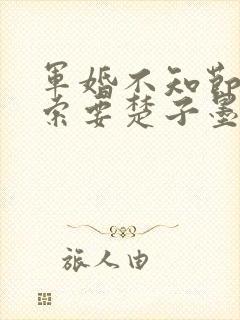 军婚不知节
索要楚子墨
旅人由